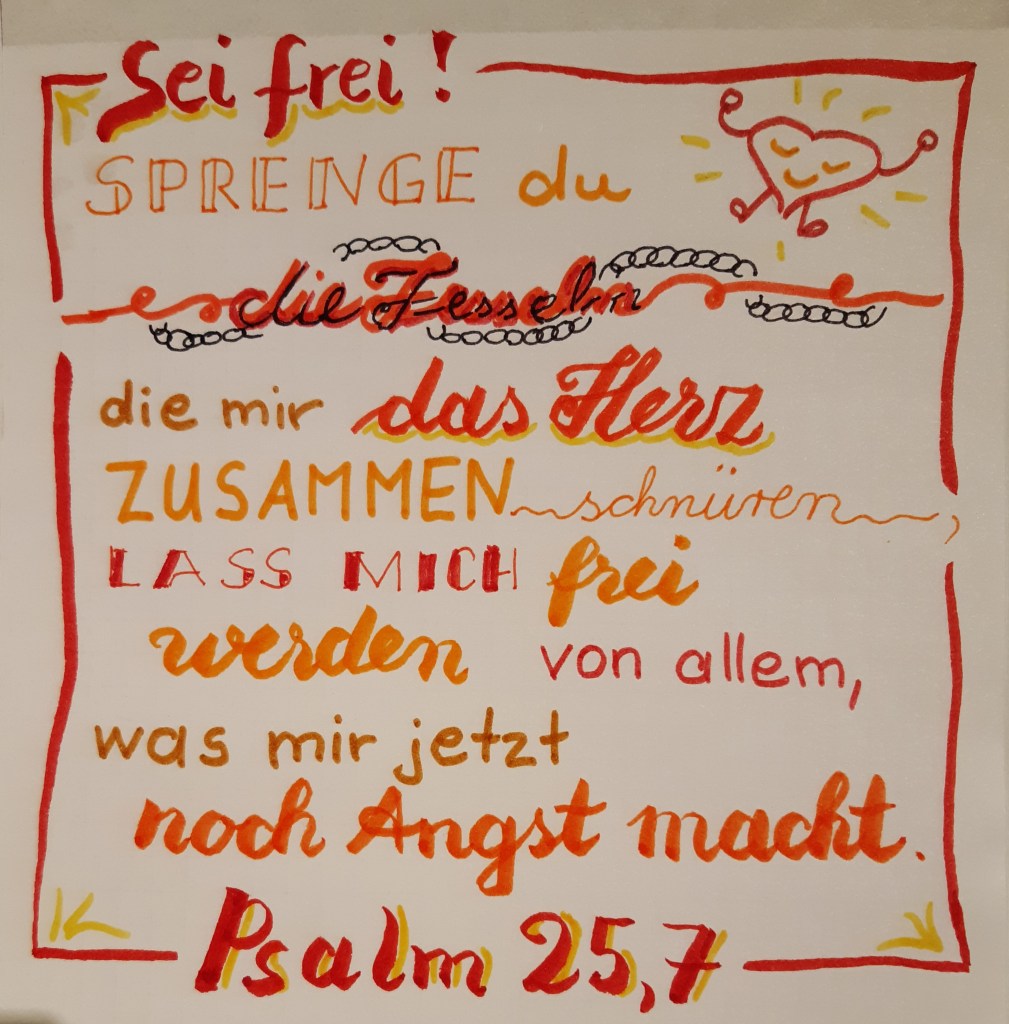 Sei frei!
SPRENGE du
die Fesseln
die mir das Herz
ZUSAMMENschnüren,
LASS MICH frei
werden von allem,
was mir jetzt
noch Angst macht.
Psalm 25,7